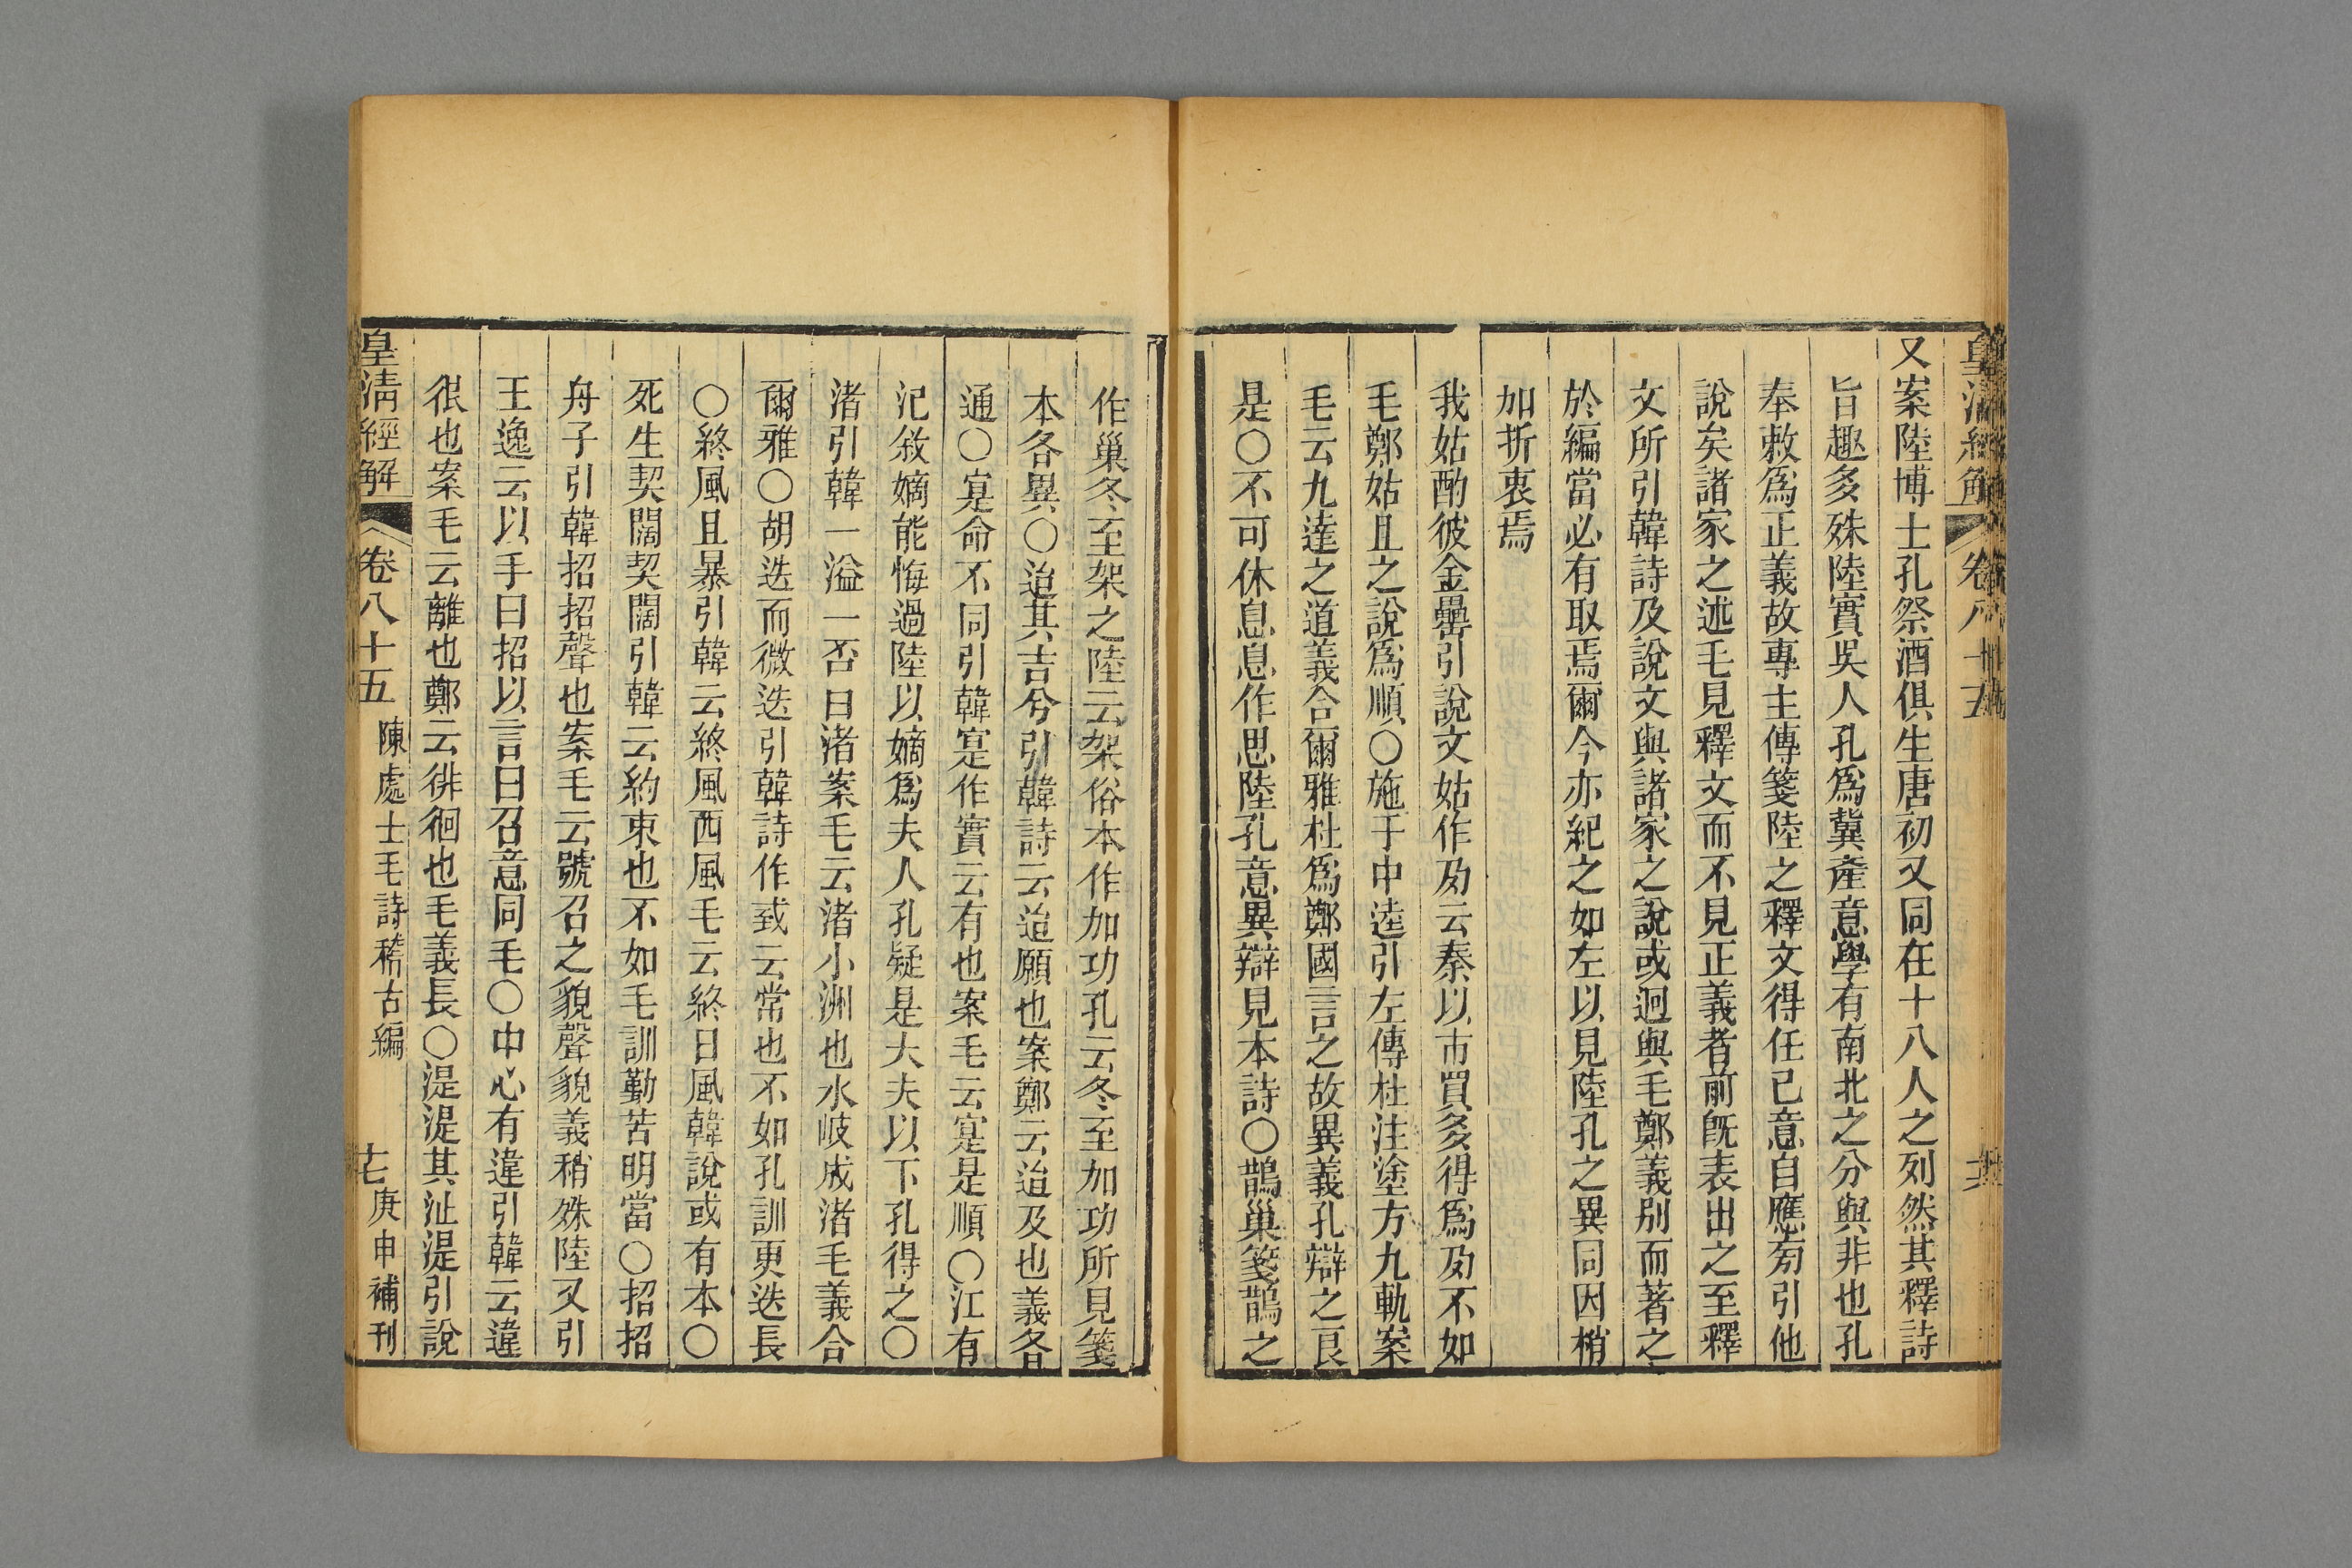 皇清經解 卷八十五
又案陸博士孔祭酒俱生唐初又同在十八人之列然其釋詩
旨趣多殊陸實吳人孔爲冀產意學有南北之分與非也孔
奉敕爲正義故專主傳箋陸之釋文得任己意自應旁引他
說矣諸家之述毛見釋文而不見正義者前旣表出之至釋
文所引韓詩及說文與諸家之說或迥與毛鄭義別而著之
於編當必有取焉爾今亦紀之如左以見陸孔之異同因梢
加折衷焉
我姑酌彼金罍引說文姑作夃云秦以市買多得爲夃不如
毛鄭姑且之說爲順○施于中逵引左傳杜注塗方九軌案
毛云九達之道義合爾雅杜爲鄭國言之故異義孔辯之良
是○不可休息息作思陸孔意異辯見本詩○鵲巢箋鵲之
作巢冬至架之陸云架俗本作加功孔云冬至加功所見箋
本各異○迨其吉兮引韓詩云迨願也案鄭云迨及也義各
通○寔命不同引韓寔作實云有也案毛云寔是順○江有
汜敘嫡能悔過陸以嫡爲夫人孔疑是大夫以下孔得之○
渚引韓一溢一否曰渚案毛云渚小洲也水岐成渚毛義合
爾雅○胡迭而微迭引韓詩作䟴云常也不如孔訓更迭長
○終風且暴引韓云終風西風毛云終日風韓說或有本○
死生契闊契闊引韓云約束也不如毛訓勤苦明當○招招
舟子引韓招招聲也案毛云號召之貌聲貌義稍殊陸又引
王逸云以手曰招以言曰召意同毛○中心有違引韓云違
很也案毛云離也鄭云徘徊也毛義長○湜湜其沚湜引說
皇清經解 卷八十五 陳處士毛詩稽古編 十七 庚申補刊